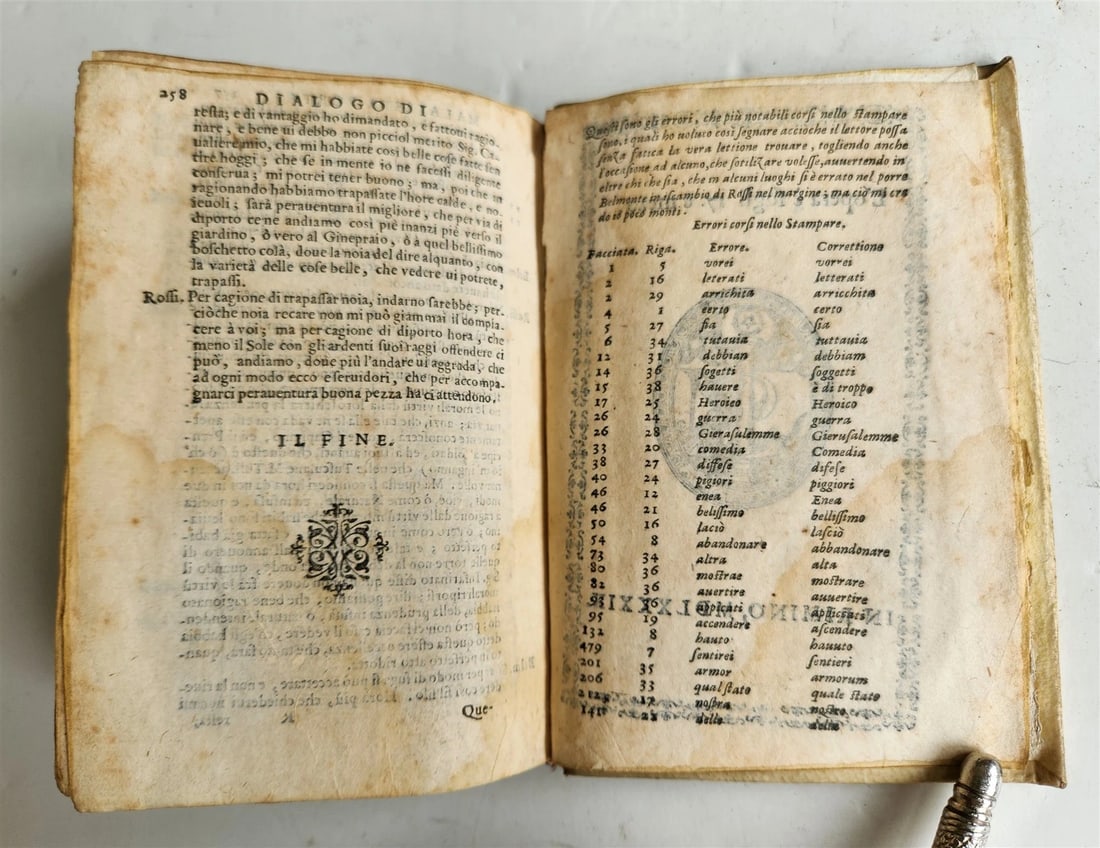 258
DIALOGO DI
resta; e di vantaggio ho dimandato, e fattoui ragio-
nare, e bene ui debbo non picciol merito Sig. Ca-
ualiere mio, che mi habbiate cosi belle cose fatte sen
tire hoggi; che se in mente io ne facessi diligente
conserua; mi potrei tener buono; ma, poi che in
ragionando habbiamo trapassate l'hore calde, e no-
ieuoli; sarà perauentura il migliore, che per via di
diporto ce ne andiamo cosi piè inanzi piè verso il
giardino, ò vero al Ginepraio, ò à quel bellissimo
boschetto colà, doue la noia del dire alquanto, con
la varietà delle cose belle, che vedere ui potrete,
trapassi.
Rossi. Per cagione di trapassar noia, indarno sarebbe; per-
ciòche noia recare non mi può giammai il compia-
cere à voi; ma per cagione di diporto hora, che
meno il Sole con gli ardenti suoi raggi offendere ci
può, andiamo, doue più l'andare ui aggrada, che
ad ogni modo ecco e seruidori, che per accompa-
gnarci perauentura buona pezza ha ci attendono.
IL FINE.
Que-
Questi sono gli errori, che più notabili corsi nello stampare
sono, i quali ho uoluto cosi segnare accioche il lettore possa
senza fatica la vera lettione trouare, togliendo anche
l'occasione ad alcuno, che sotilizar volesse, auuertendo in
oltre chi che sia, che in alcuni luoghi si è errato nel porre
Belmonte in iscambio di Rossi nel margine; ma ciò mi cre
do io poco monti.
Errori corsi nello Stampare.
Facciata. Riga. Errore. Correttione
1 5 vorei vorrei
2 16 leterati letterati
2 29 arrichita arricchita
4 1 eerto certo
5 27 sia sia
6 34 tutauia tuttauia
12 31 debbian debbiam
14 36 sogetti soggetti
15 38 hauere è di troppo
17 25 Heroieo Heroico
26 24 guerra guerra
26 28 Gierasulemme Gierusalemme
33 20 comedia Comedia
38 27 diffese difese
40 24 pigiori piggiori
46 12 enea Enea
46 21 belissimo bellissimo
50 16 laciò lasciò
54 8 abandonare abbandonare
73 34 altra alta
80 36 mostrae mostrare
82 36 auertire auuertire
36 appicati appiccati
95 19 accendere ascendere
132 8 hauto hauuto
479 7 sentirei sentieri
201 35 armor armorum
206 33 qual stato quale stato
212 17 nostra nostro
141 22 delle